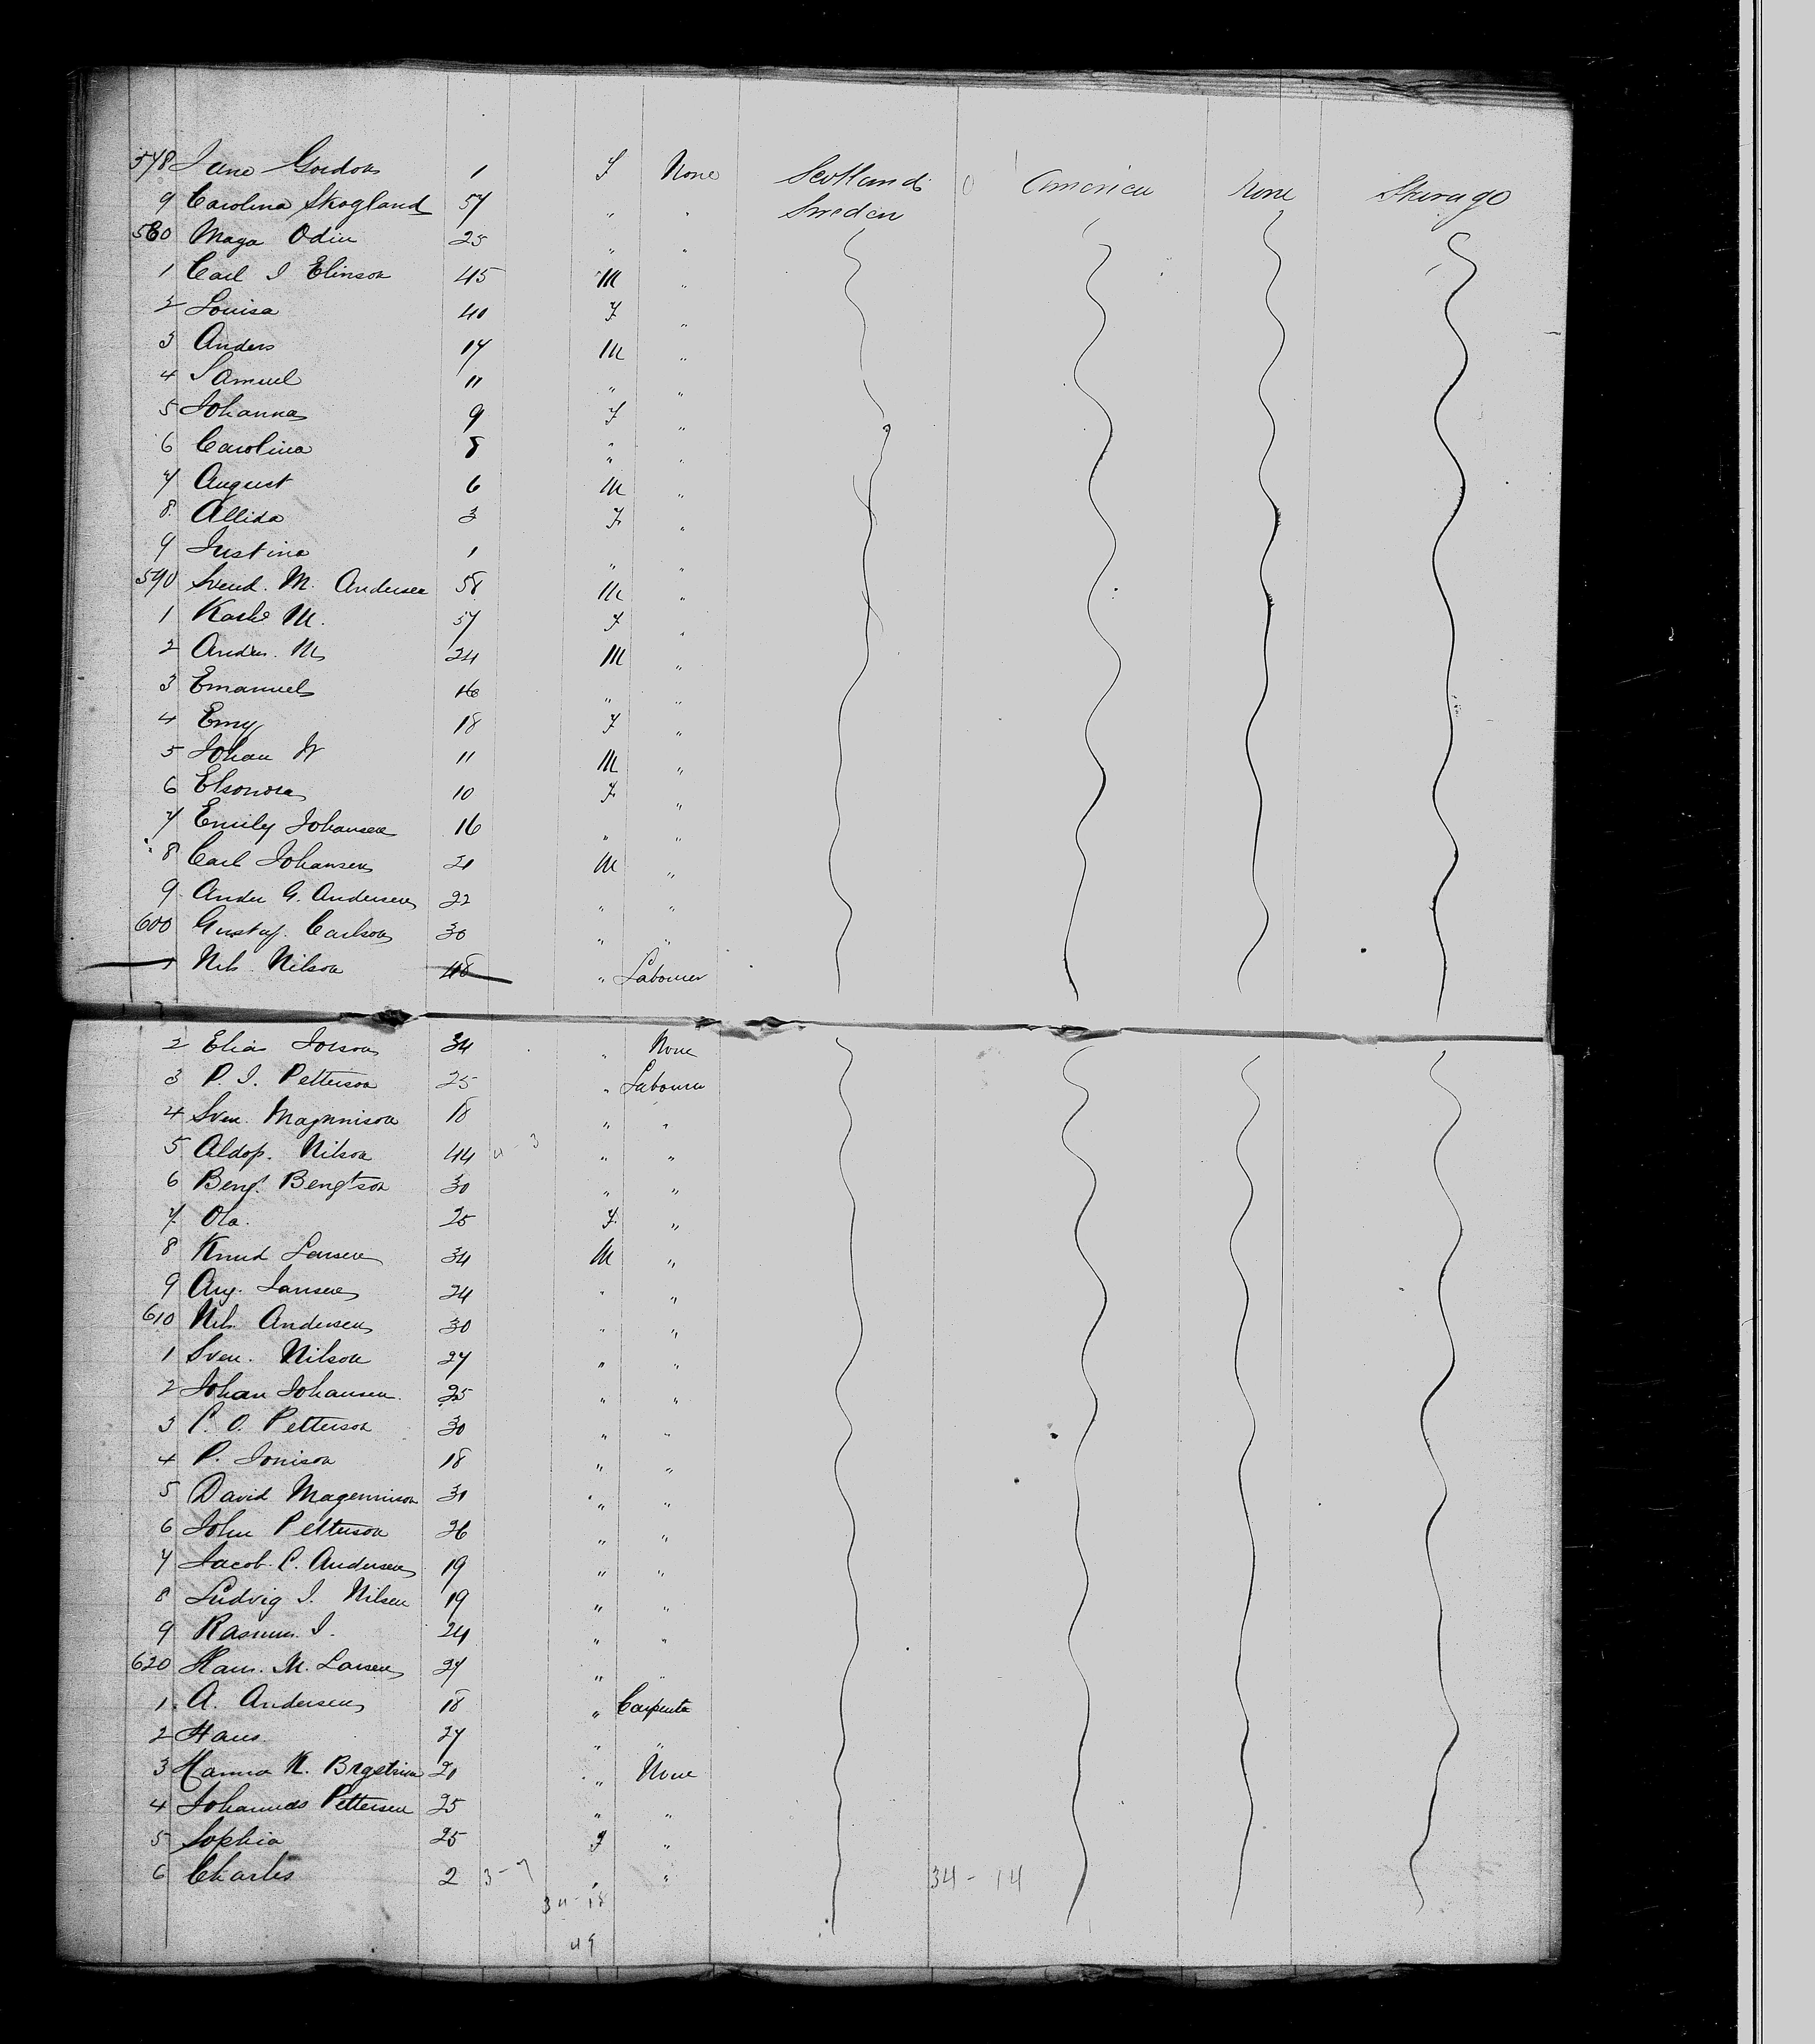 578 Jane Gordon 1 F None Scotland America None Steerage
9 Carolina Skogland 57 " " Sweden
580 Maga Odin 25 " "
1 Carl I Elinson 45 M "
2 Louisa 40 F "
3 Anders 17 M "
4 Samuel 11 " "
5 Johanna 9 F "
6 Carolina 8 " "
7 August 6 M "
8 Allida 3 F "
9 Justina 1 " "
590 Svend. M. Andersen 58 M "
1 M. 57 F "
2 Anders. M 24 M "
3 Emanuel 16 " "
4 Emy 18 F "
5 Johan W 11 M "
6 Elsonora 10 F "
7 Emily Johansen 16 " "
8 Carl Johansen 21 M "
9 Ander G. Andersen 22 " "
600 Gustaf. Carlson 30 " "
1 Nils Nilson 48 " Labourer
2 Elias 34 " None
3 P. I. Petterson 25 " Labourer
4 Sven. Magnnison 18 " "
5 Aldop. Nilson 44 " "
6 Beng. Bengtson 30 " "
7 Ola. 25 F "
8 Knud Larsen 34 M "
9 Aug. Jansen 24 " "
610 Nils Andersen 30 " "
1 Sven. Nilson 27 " "
2 Johan Johansen. 25 " "
3 P. O. Petterson 30 " "
4 P. Jonison 18 " "
5 David Magennison 31 " "
6 John Petterson 26 " "
7 Jacob. P. Andersen 19 " "
8 Ludvig I. Nilsen 19 " "
9 Rasmus I. 24 " "
620 Hans. M. Larsen 27 " "
1 A. Andersen 18 " Carpenter
2 Hans. 27 " "
3 Hanna K. 21 " None
4 Johannes Pettersen 25 " "
5 Sophia 25 F "
6 Charles 2 3-7 " " 34-14
34-18
49